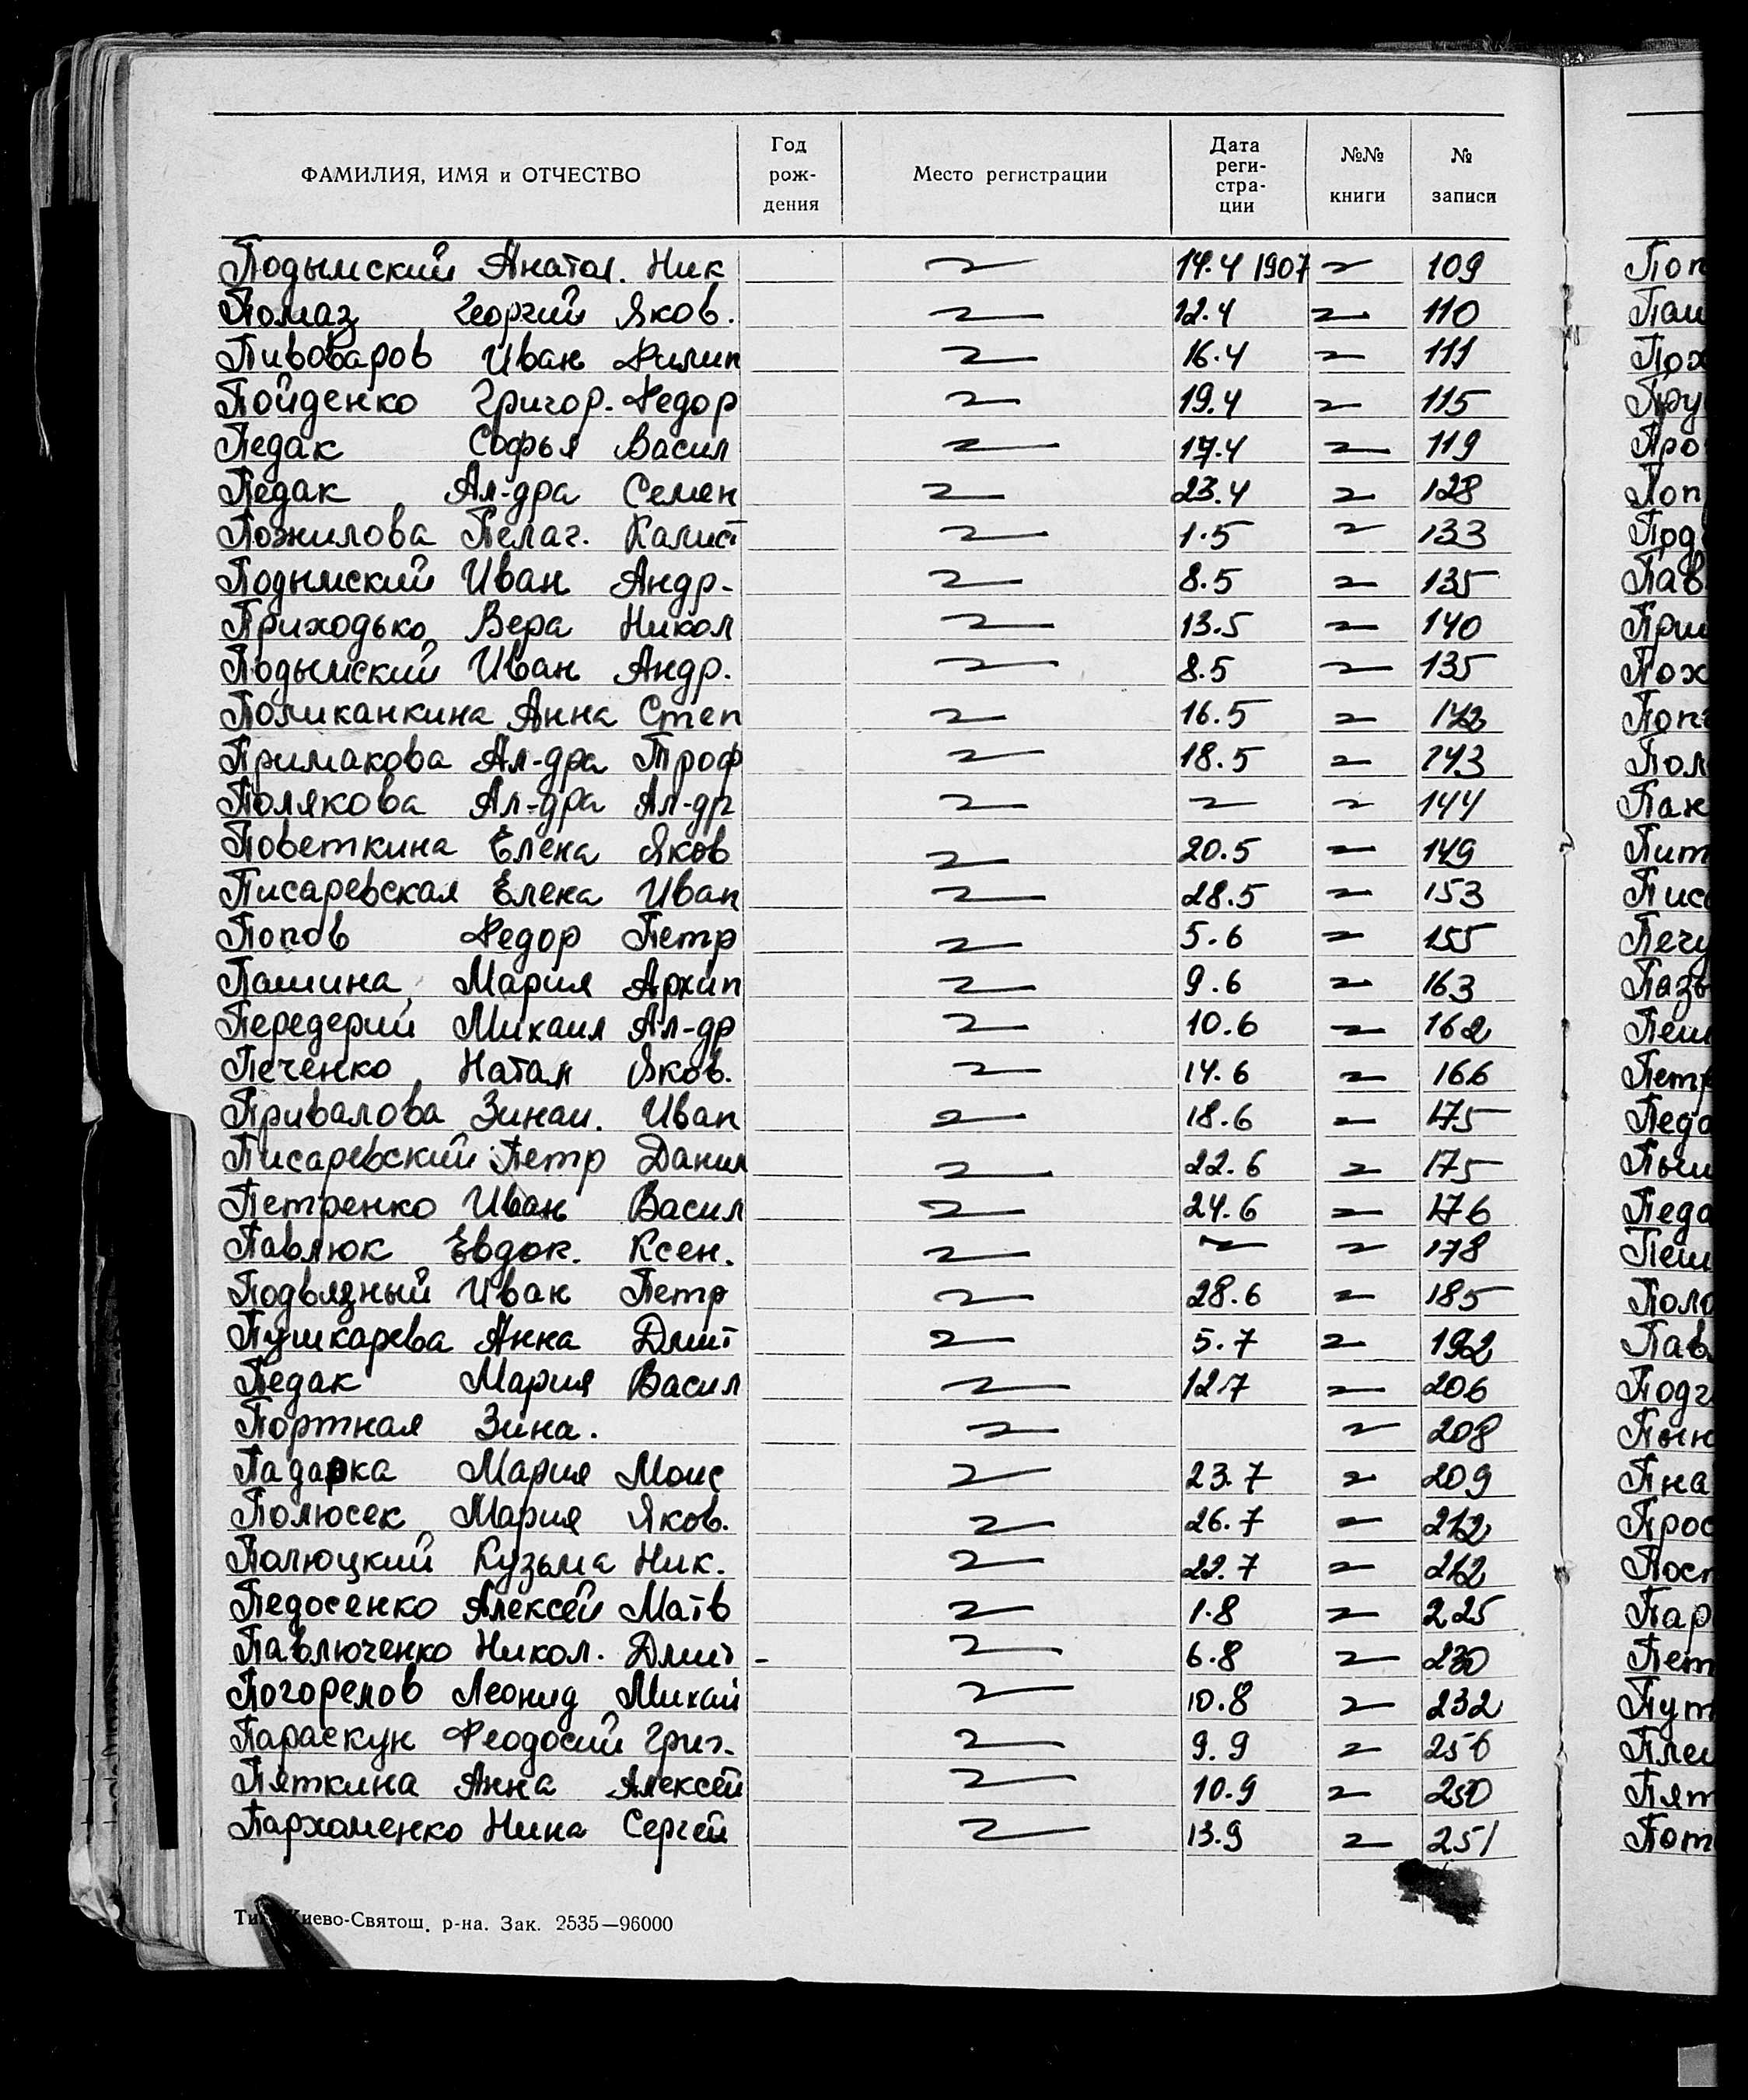 ФАМИЛИЯ, ИМЯ и ОТЧЕСТВО Год рождения Место регистрации Дата регистрации №№ книги № записи
Подымский Анатол. Ник 14.4 1907 109
Помаз Георгий Яков. 12.4 110
Пивоваров Иван Филип 16.4 111
Пойденко Григор. Федор 19.4 115
Педак Софья Васил 17.4 119
Педак Ал-дра Семен 23.4 128
Пожилова Пелаг. Калист 1.5 133
Подымский Иван Андр- 8.5 135
Приходько Вера Никол 13.5 140
Подымский Иван Андр. 8.5 135
Поликанкина Анна Степ 16.5 142
Примакова Ал-дра Троф 18.5 143
Полякова Ал-дра Ал-др 144
Поветкина Елена Яков 20.5 149
Писаревская Елена Иван 28.5 153
Попов Федор Петр 5.6 155
Пашина Мария Архип 9.6 163
Передерий Михаил Ал-др 10.6 162
Печенко Натал Яков. 14.6 166
Привалова Зинаи. Иван 18.6 175
Писаревский Петр Данил 22.6 175
Петренко Иван Васил 24.6 176
Павлюк Евдок. Ксен. 178
Подвязный Иван Петр 28.6 185
Пушкарева Анна Дмит 5.7 192
Педак Мария Васил 12.7 206
Портная Зина. 208
Падарка Мария Моис 23.7 209
Полюсек Мария Яков. 26.7 212
Полюцкий Кузьма Ник. 22.7 212
Педосенко Алексей Матв 1.8 225
Павлюченко Никол. Дмит - 6.8 230
Погорелов Леонид Михай 10.8 232
Параскун Феодосий Григ. 9.9 256
Пяткина Анна Алексей 10.9 250
Пархоменко Нина Сергей 13.9 251
Киево-Святош. р-на. Зак. 2535—96000